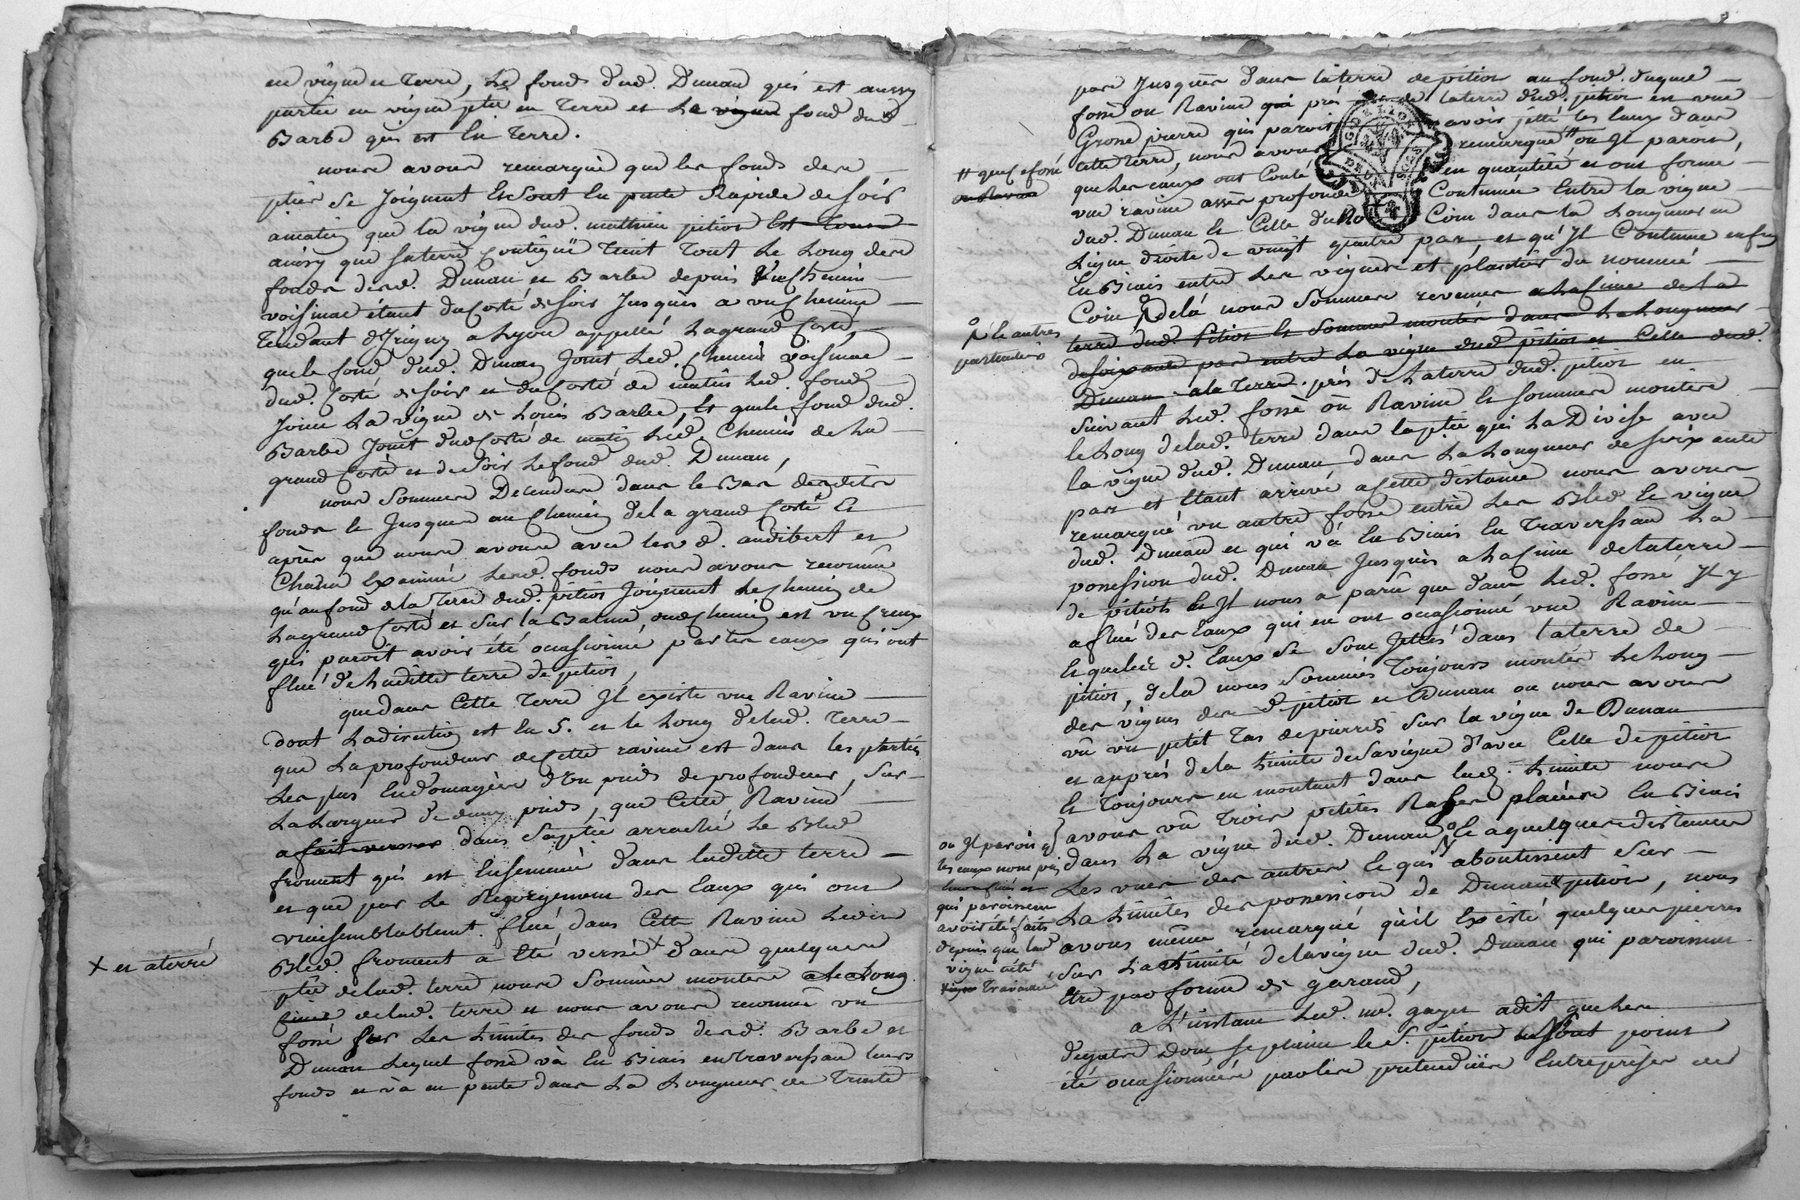 en vigne et terre, le fonds dud. Dunan qui est aussy
partie en vigne ptie en terre et la vigne fond dud.
Barbe qui est en terre.
nous avons remarqué que les fonds des
pties se joignent et sont en pente rapide de soir
a matin que la vigne dud. mathieu pition est tout
ainsy que sa terre contigue tient tout le long des
fonds desd. Dunan et Barbe depuis un chemin
voisinal étant du costé de soir jusques a un chemin
tendant d'Irigny a Lyon appellé la grand Coste,
que le fond dud. Dunan joint led. chemin voisinal
dud. Costé de soir et du costé de matin led. fond
joint la vigne de Louis Barbe, et que le fond dud.
Barbe joint dud costé de matin led. chemin de la
grand Coste et de soir le fond dud. Dunan,
nous sommes décendus dans le bas desdits
fonds et jusques au chemin de la grand Coste et
après que nous avons avec lesd. audibert et
examiné lesd. fonds nous avons reconnu
qu'au fond de la terre dud. pition joignent le chemin de
la grand Coste et sur la Balme dud chemin est un creux
qui paroit avoir été occasionné par les eaux qui ont
flué de laditte terre de pition,
que dans cette terre Il existe une Ravine
dont la direction est en S. et le long de lad. terre
que la profondeur de cette ravine est dans les parties
les plus endomagées d'un pieds de profondeur, sur
la largeur de deux pieds, que cette Ravine
a fait verser dans sa ptie arraché le Bled
froment qui est ensemencé dans laditte terre
et que par le Regorgement des eaux qui ont
vraisemblablement flué dans cette Ravine ledit
Bled froment a été versé + dans quelques
+ et aterré
pties de lad. terre nous sommes montés a le long
cime de lad. terre et nous avons reconnu un
fossé sur les limites des fonds desd. Barbe et
Dunan lequel fossé và en Biais en traversant leurs
fonds et và en pente dans la Longueur de trente
pas jusques dans la terre de pition au fond duquel
fossé ou Ravine qui près de la terre dud. pition est une
Grosse pierre qui paroit avoir jetté les Eaux dans
cette terre, nous avons remarqué # ou Il paroit,
# que ce fossé
ou Ravine
que les eaux ont Coulé en quantité et ont formé
une ravine assés profonde Continue entre la vigne
dud. Dunan et celle du Coin dans la longueur en
Ligne droite de vingt quatre pas, et qu'Il Continue
en Biais entre les vignes et plantier du nommé
Coin de là nous sommes revenus a la Cime de la
& autres
particuliers
terre dud. Pition et sommes montés dans la longueur
de soixante pas entre la vigne dud pition et celle dud.
Dunan a la terre près de la terre dud. pition en
suivant led. fossé ou Ravine et sommes montés
le long de lad. terre dans la ptie qui la Divise avec
la vigne dud. Dunan, dans la longueur de soixante
pas et étant arrivé a cette distance nous avons
remarqué un autre fossé entre les Bled et vigne
dud. Dunan et qui và en Biais en traversant la
possession dud. Dunan jusques a la Cime de la terre
de pition et Il nous a paru que dans led. fossé Il y
a flué des Eaux qui en ont occasionné une Ravine
et que lesd. Eaux se sont jettés dans la terre de
pition, de la nous sommes toujours montés le long
des vignes des d. pition et Dunan ou nous avons
vu un petit tas de pierres sur la vigne de Dunan
et auprès de la limite de sa vigne d'avec celle de pition
et toujours en montant dans lad. limite nous
avons vu trois petites Rases placés en Biais
dans la vigne dud. Dunan et a quelques distances
ou Il paroit q
les eaux n'ont pas
qui paroissent
avoir été faits
depuis que lad
vigne a été
travaillée
Les unes des autres et qui aboutissent sur
La limites des possession de Dunan & pition, nous
avons même remarqué qu'il Existé quelques pierres
sur la limite de la vigne dud. Dunan qui paroissent
etre par forme de garand,
a L'instant led. me. gayet a dit que les
dégats dont se plaint le S. pition ne sont point
été occasionnés par les prétendues Entreprises des